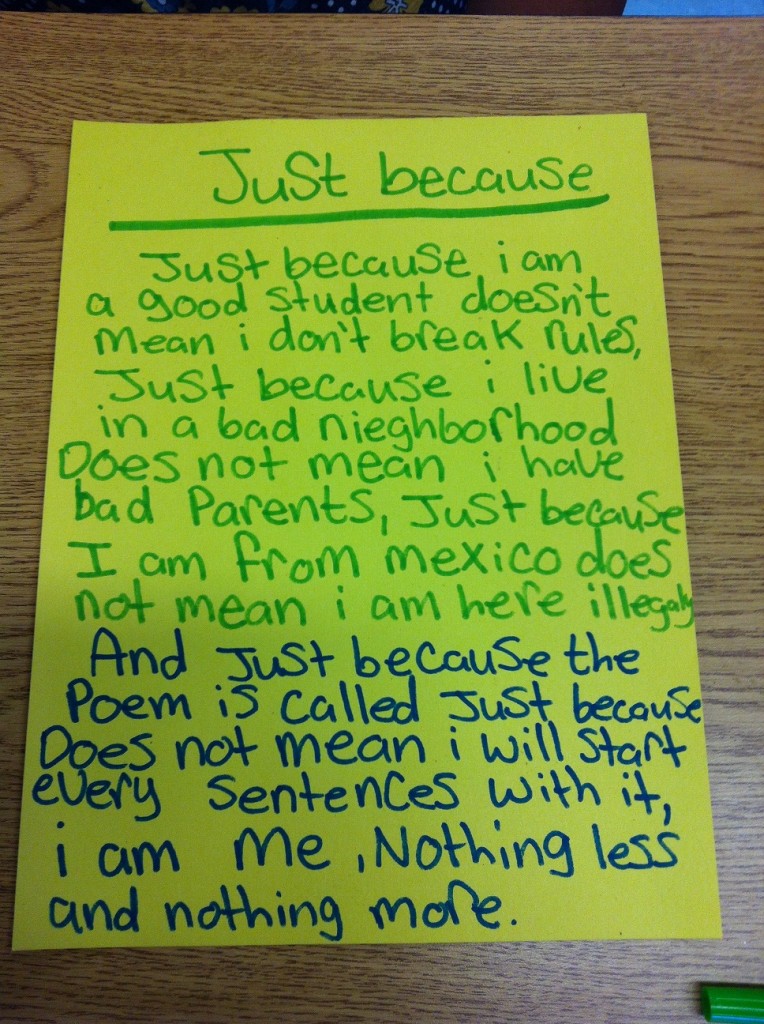 Just because
Just because i am
a good student doesn't
mean i don't break rules,
Just because i live
in a bad nieghborhood
Does not mean i have
bad Parents, Just because
I am from mexico does
not mean i am here illegaly
And Just because the
Poem is called Just because
Does not mean i will start
every sentences with it,
i am Me, Nothing less
and nothing more.